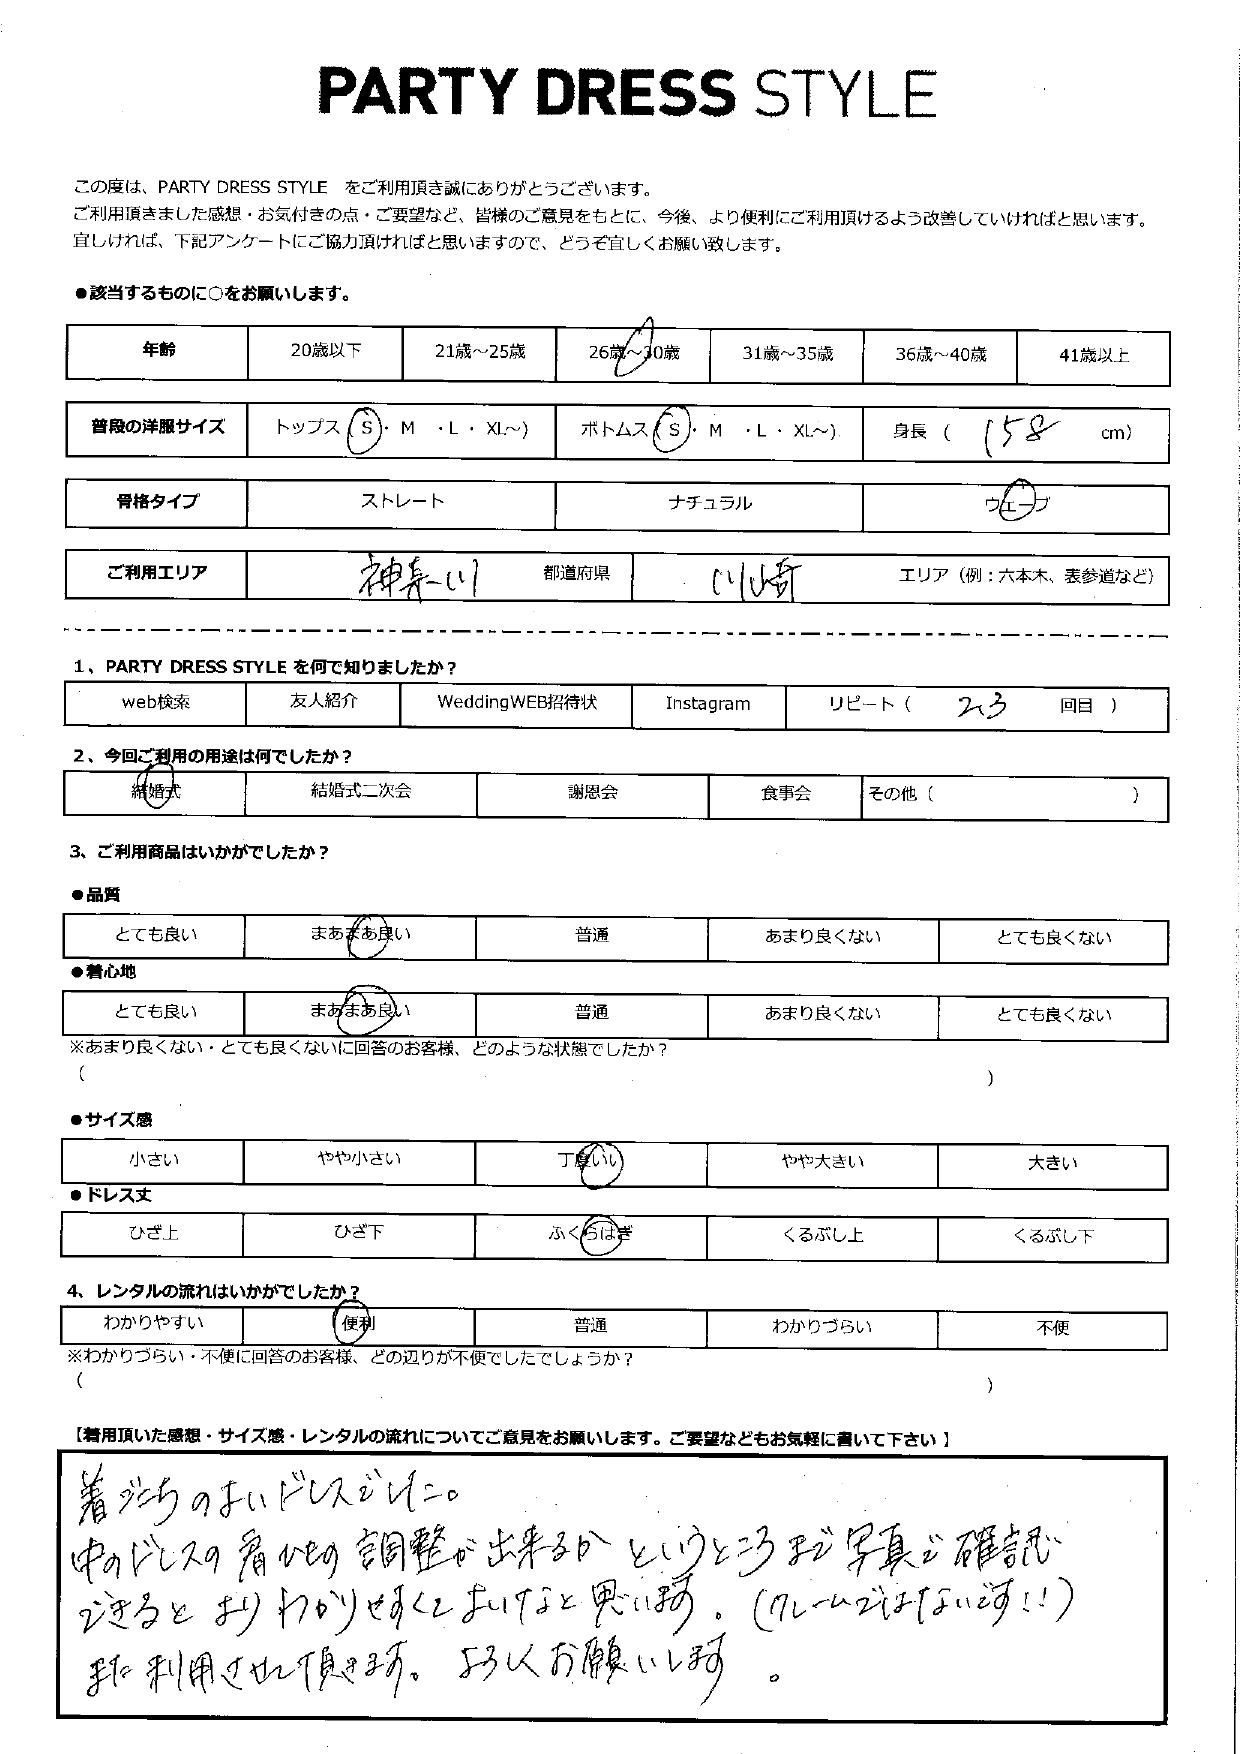 PARTY DRESS STYLE
この度は、PARTY DRESS STYLE をご利用頂き誠にありがとうございます。
ご利用頂きました感想・お気付きの点・ご要望など、皆様のご意見をもとに、今後、より便利にご利用頂けるよう改善していければと思います。
宜しければ、下記アンケートにご協力頂ければと思いますので、どうぞ宜しくお願い致します。
●該当するものに○をお願いします。
年齢 20歳以下 21歳～25歳 26歳～30歳 31歳～35歳 36歳～40歳 41歳以上
普段の洋服サイズ トップス（S・M ・L・XL～） ボトムス（S・M ・L・XL～） 身長（158 cm）
骨格タイプ ストレート ナチュラル ウェーブ
ご利用エリア 神奈川 都道府県 川崎 エリア（例：六本木、表参道など）
1、PARTY DRESS STYLE を何で知りましたか？
web検索 友人紹介 WeddingWEB招待状 Instagram リピート（ 2,3 回目 ）
2、今回ご利用の用途は何でしたか？
結婚式 結婚式二次会 謝恩会 食事会 その他（ ）
3、ご利用商品はいかがでしたか？
●品質
とても良い まあまあ良い 普通 あまり良くない とても良くない
●着心地
とても良い まあまあ良い 普通 あまり良くない とても良くない
※あまり良くない・とても良くないに回答のお客様、どのような状態でしたか？
（ ）
●サイズ感
小さい やや小さい 丁度いい やや大きい 大きい
●ドレス丈
ひざ上 ひざ下 ふくらはぎ くるぶし上 くるぶし下
4、レンタルの流れはいかがでしたか？
わかりやすい 便利 普通 わかりづらい 不便
※わかりづらい・不便に回答のお客様、どの辺りが不便でしたでしょうか？
（ ）
【着用頂いた感想・サイズ感・レンタルの流れについてご意見をお願いします。ご要望などもお気軽に書いて下さい】
着ごこちのよいドレスでした。
中のドレスの肩ひもの調整が出来るかというところまで写真で確認
できるとよりわかりやすくてよいなと思います。(クレームではないです!!)
また利用させて頂きます。よろしくお願いします。